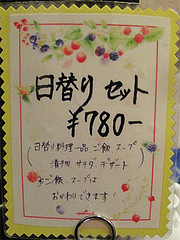 日替り セット
¥780-
(日替り料理一品 ご飯 スープ
漬物 サラダ デザート)
※ご飯 スープは
おかわりできます!